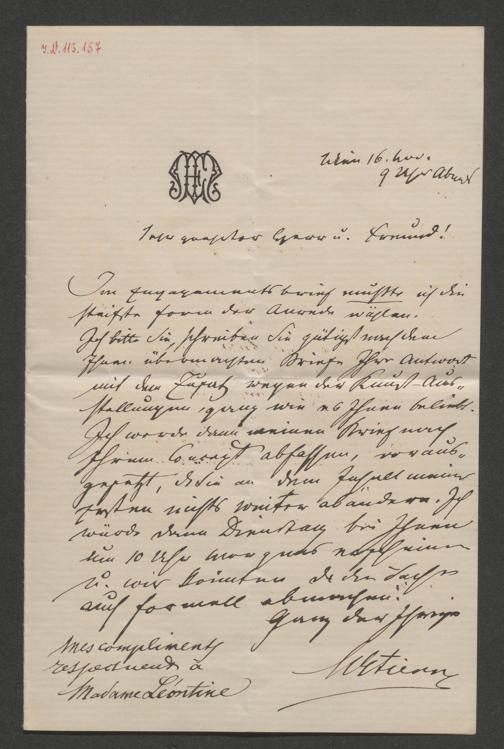 I.N. 115.157
Wien 16. Nov.
9 Uhr Abends
Sehr geehrter Herr u. Freund!
Im Engagementsbrief mußte ich die
steifste Form der Anrede wählen.
Ich bitte Sie, schreiben Sie gütigst nach dem
Ihnen übermachten Briefe Ihre Antwort
mit dem Zusatz wegen der Kunst-Aus-
stellungen, ganz wie es Ihnen beliebt.
Ich werde dann meinen Brief nach
Ihrem Concept abfassen, voraus-
gesetzt, daß Sie an dem Inhalt meines
ersten nichts weiter abändern. Ich
würde dann Dienstag bei Ihnen
um 10 Uhr morgens erscheinen
u. wir könnten da die Sache
auch formell abmachen.
Ganz der Ihrige
Mes compliments
respectueux à
Madame Léontine
MEtienne